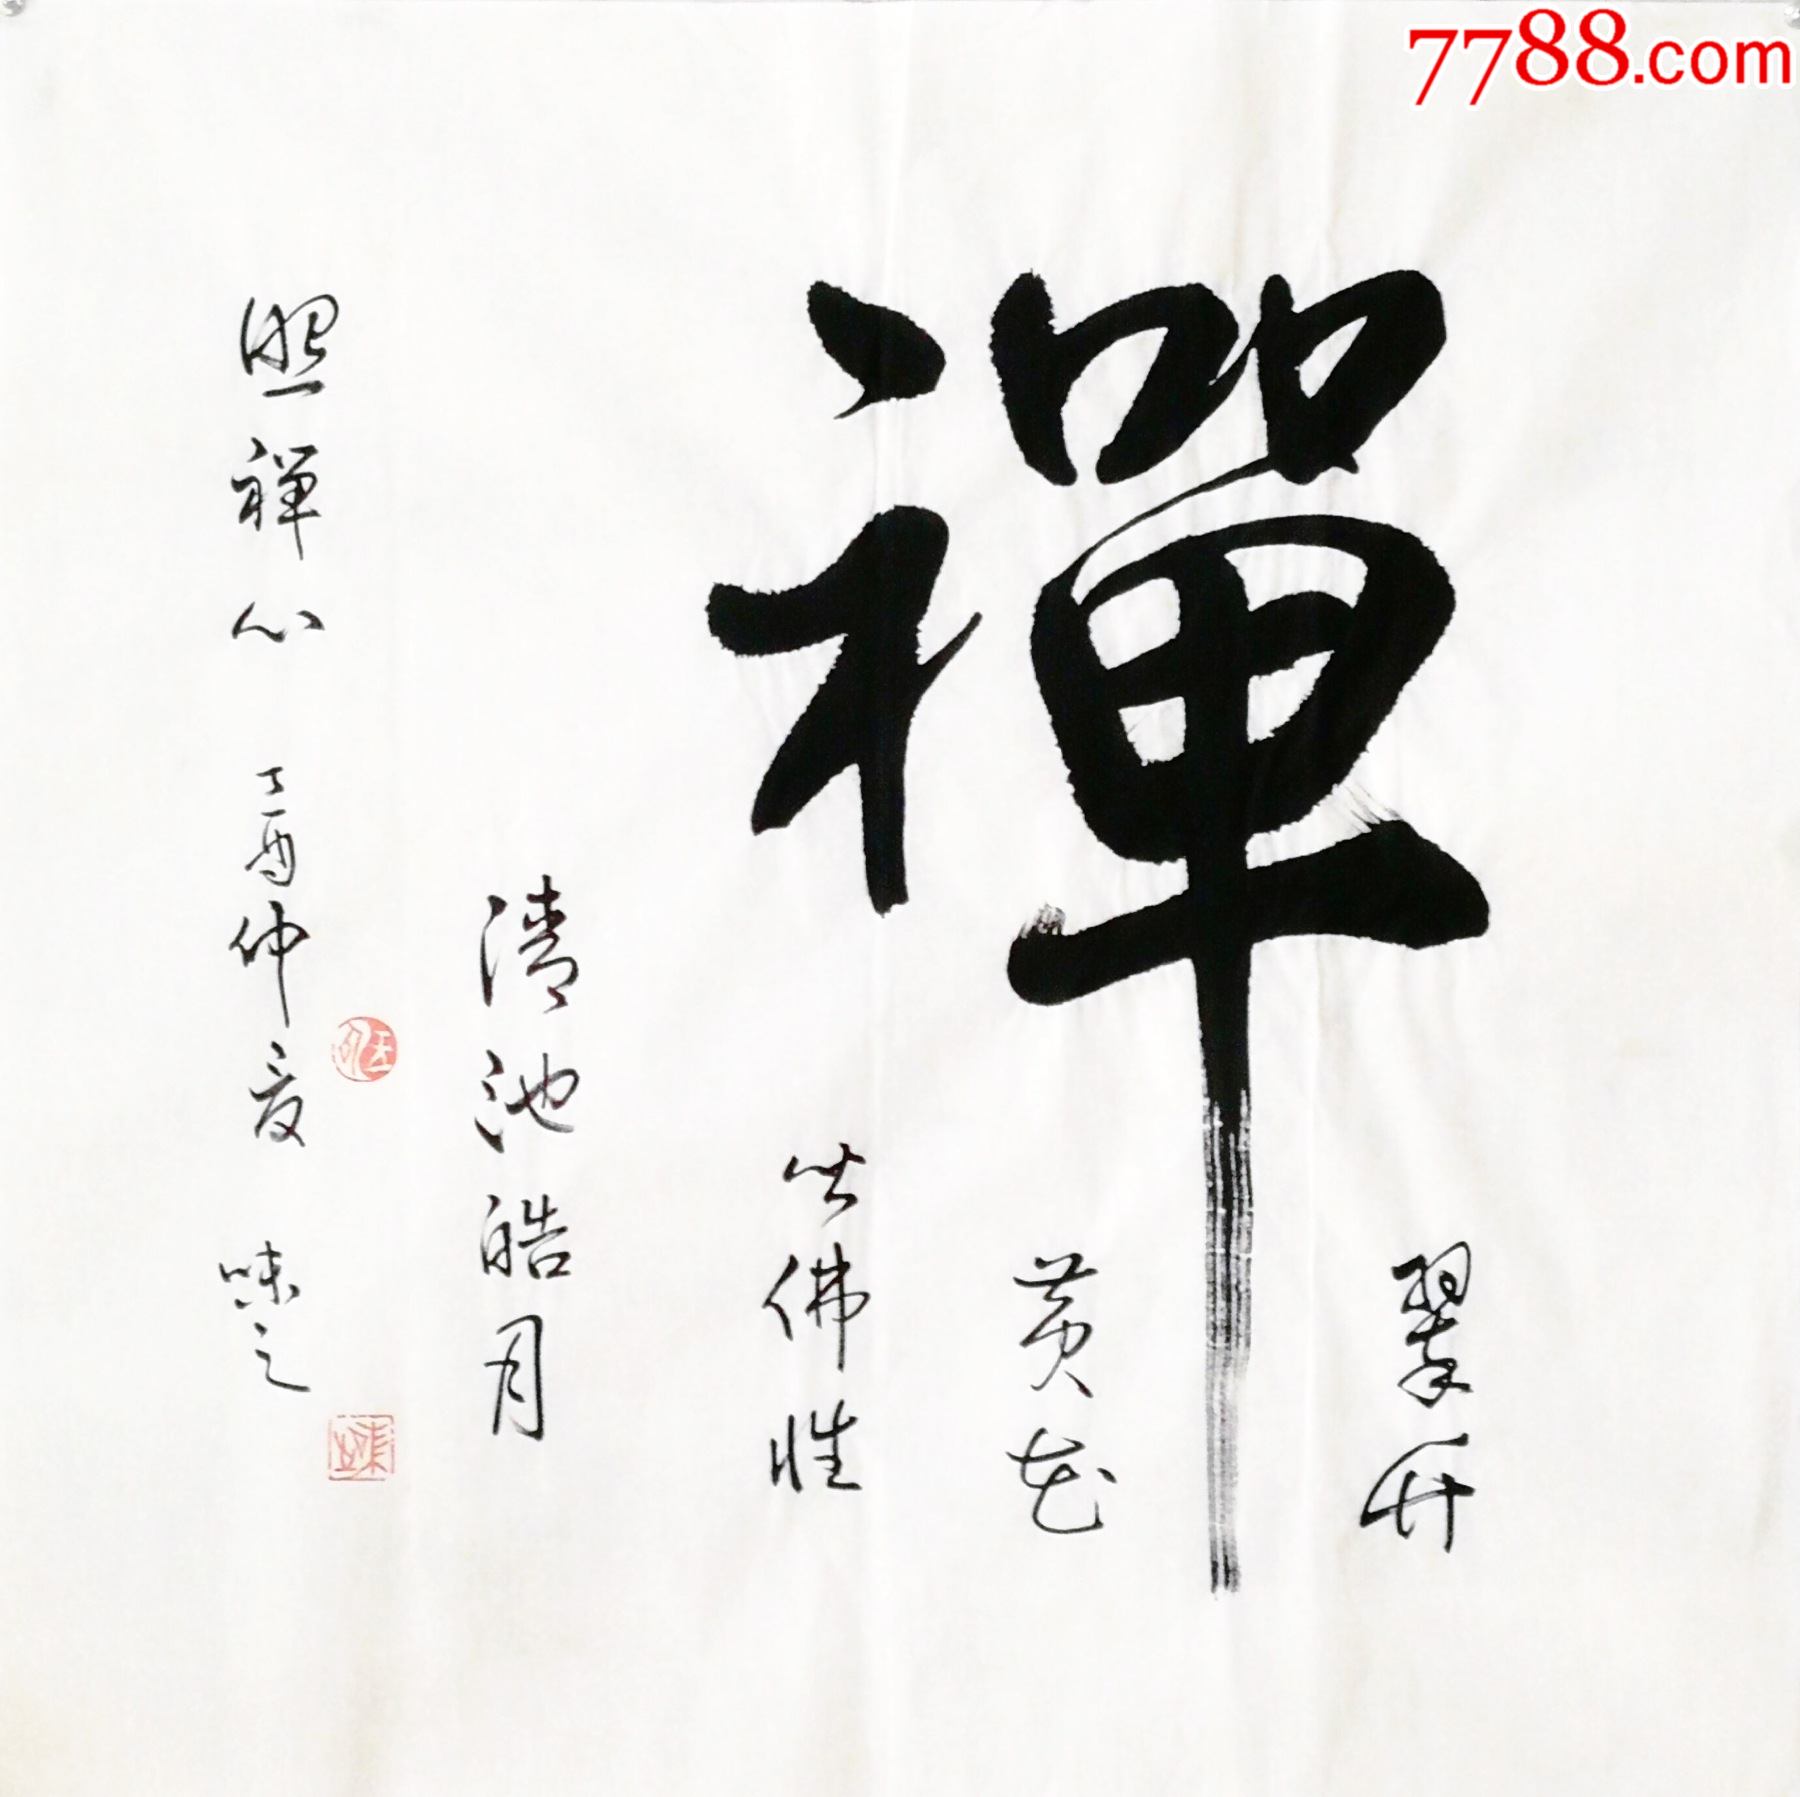 7788.com
禪
翠竹
黄花
皆佛性
清池皓月
照禅心 丁酉仲夏 味之